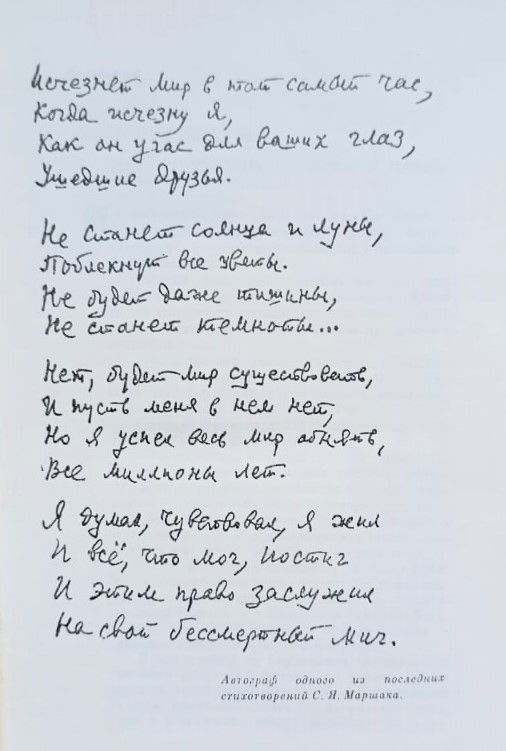 Исчезнет мир в тот самый час,
Когда исчезну я,
Как он угас для ваших глаз,
Ушедшие друзья.
Не станет солнца и луны,
Поблекнут все цветы.
Не будет даже тишины,
Не станет темноты...
Нет, будет мир существовать,
И пусть меня в нем нет,
Но я успел весь мир обнять,
Все миллионы лет.
Я думал, чувствовал, я жил
И всё, что мог, постиг
И этим право заслужил
На свой бессмертный миг.
Автограф одного из последних
стихотворений С. Я. Маршака.